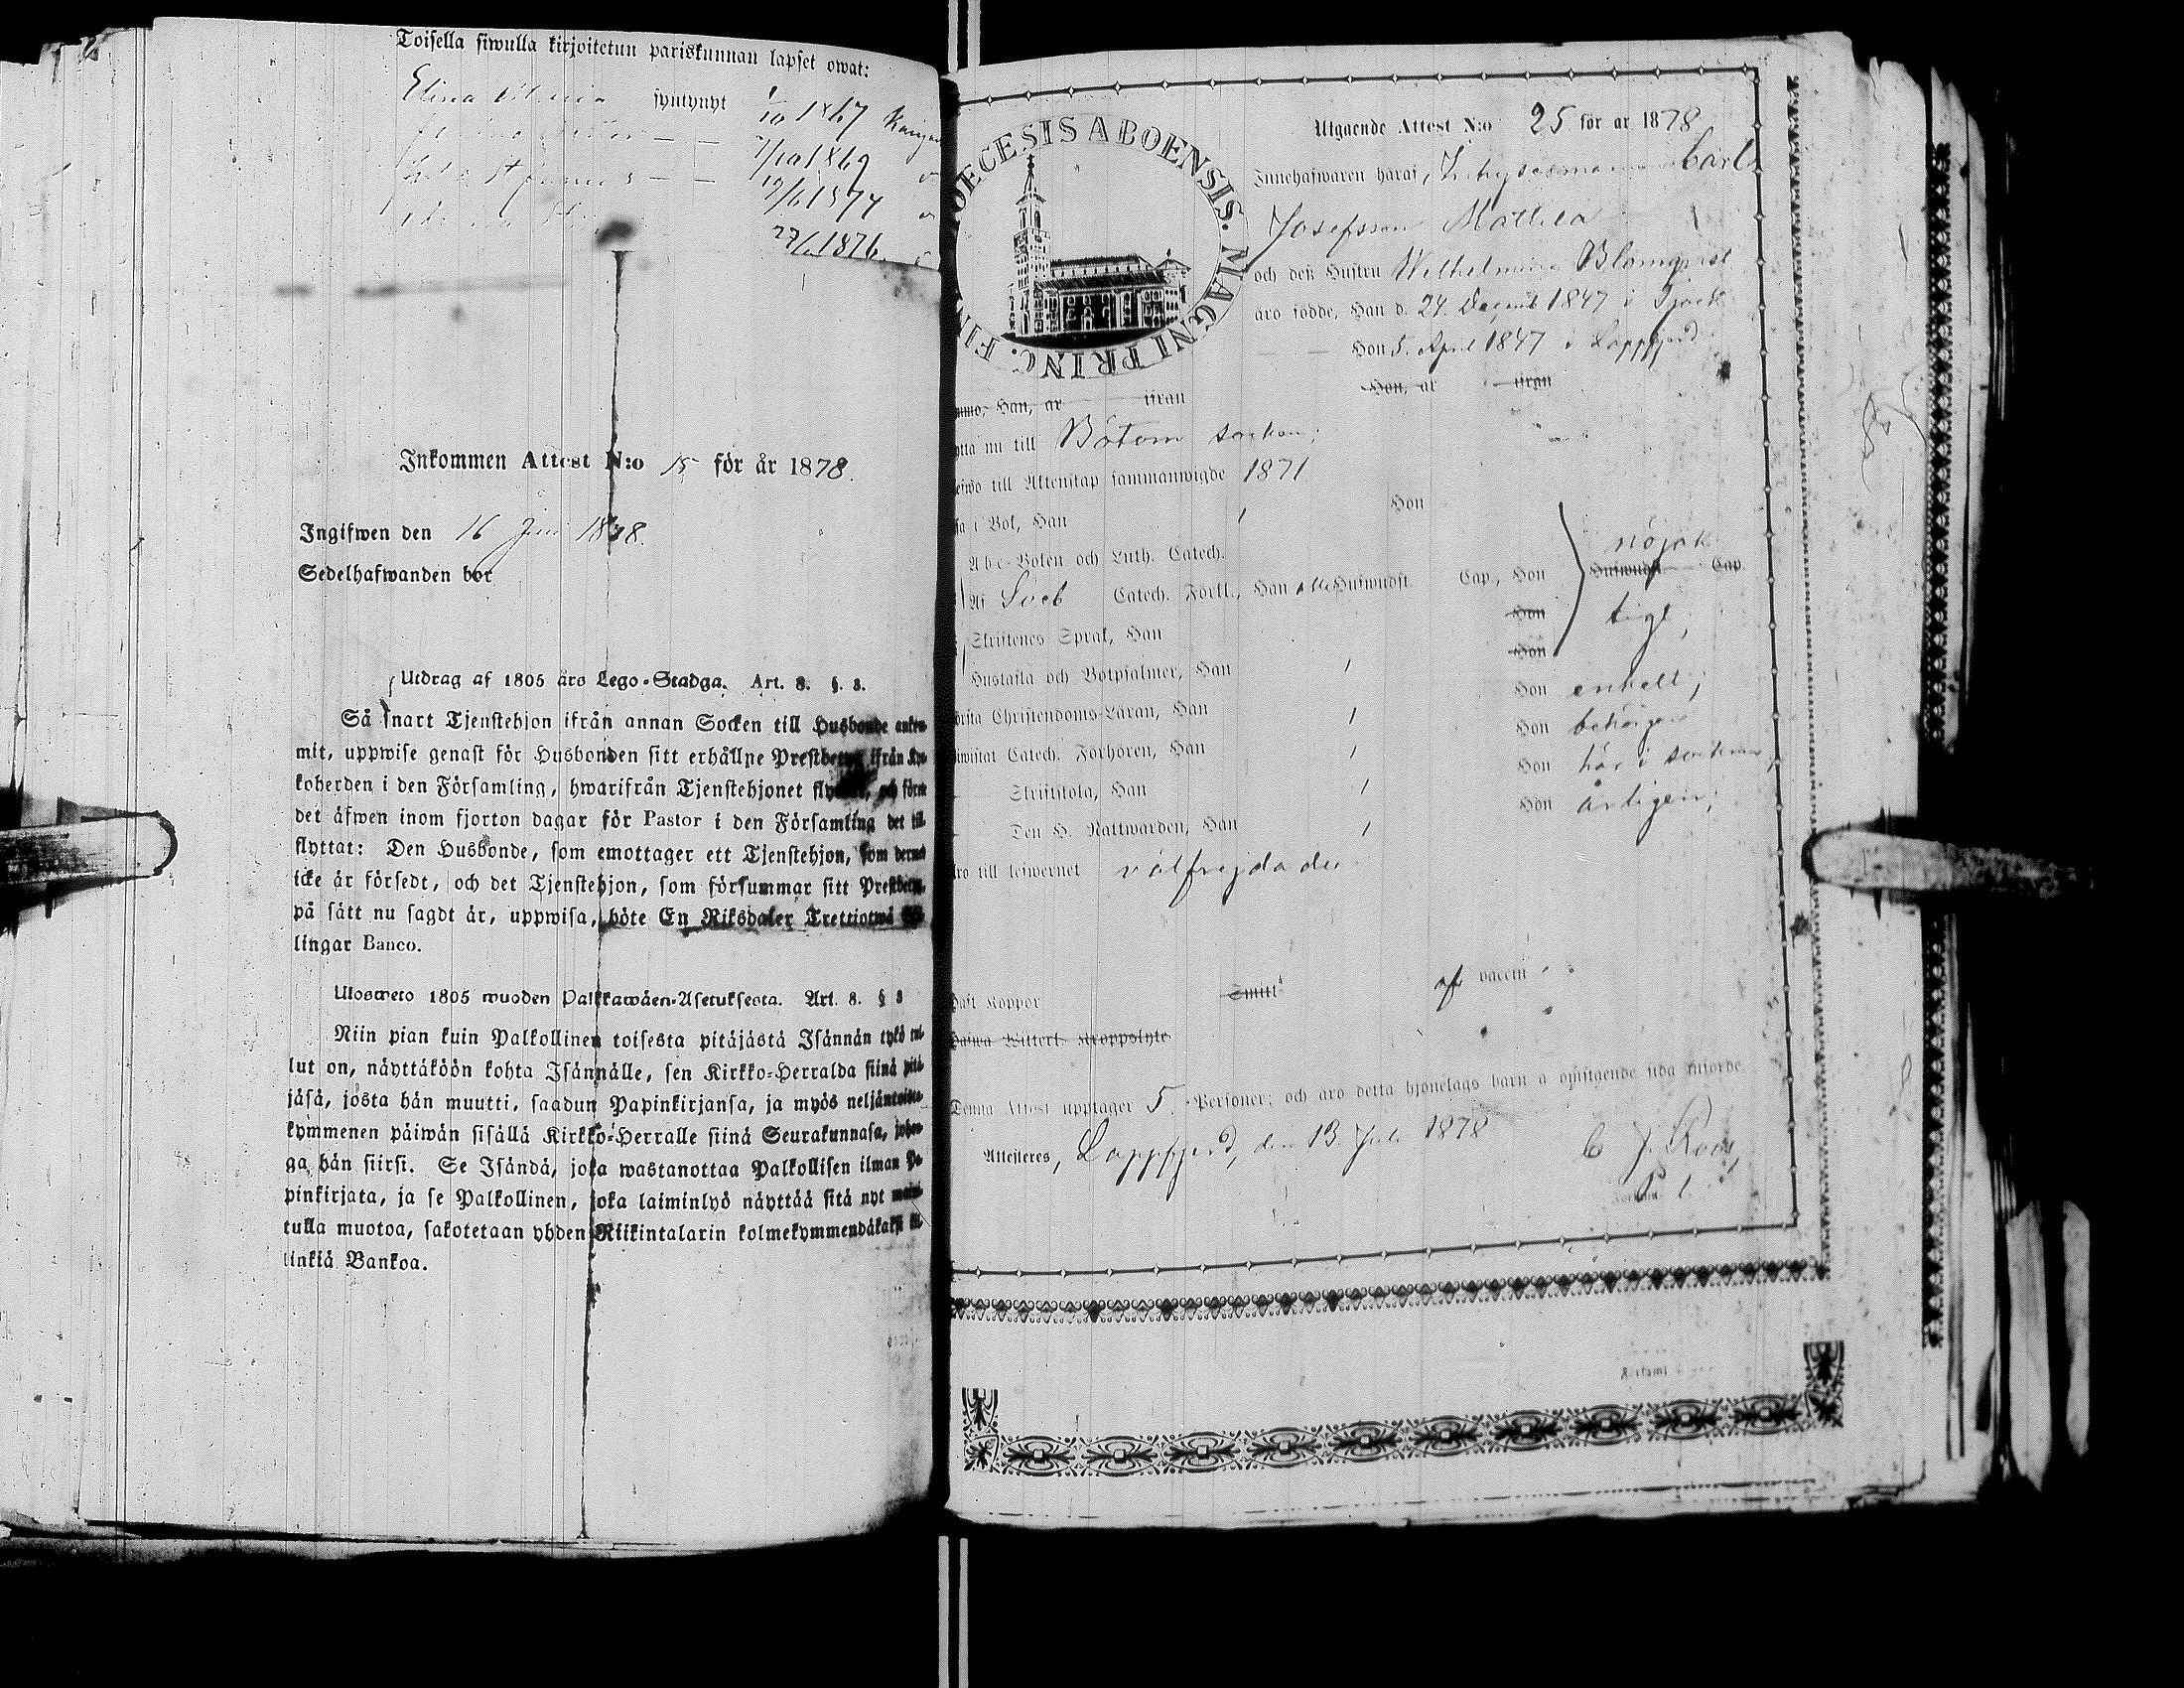 Toisella siwulla kirjoitetun pariskunnan lapset owat:
Elina syntynyt 1/10 1867
7/10 1869
19/6 1874
27/6 1876
Inkommen Attest N:o 15 för år 1878.
Ingifwen den 16 Juni 1878.
Sedelhafwanden bor
Utdrag af 1805 års Lego-Stadga. Art. 8. §. 8.
Så snart Tjenstehjon ifrån annan Socken till Husbonde ankom-
mit, uppwise genast för Husbonden sitt erhållne Prestbetyg ifrån Kyr-
koherden i den Församling, hwarifrån Tjenstehjonet flyttat, och förete
det äfwen inom fjorton dagar för Pastor i den Församling det till-
flyttat: Den Husbonde, som emottager ett Tjenstehjon, som dermed
icke är försedt, och det Tjenstehjon, som försummar sitt Prestbetyg,
på sätt nu sagdt är, uppwisa, böte En Riksdaler Trettiotwå
lingar Banco.
Uloswеto 1805 wuoden Palkkawäen-Asetuksesta. Art. 8. § 8
Niin pian kuin Palkollinen toisesta pitäjästä Isännän tykö tul-
lut on, näyttäköön kohta Isännälle, sen Kirkko-Herralda siinä pitä-
jäsä, josta hän muutti, saadun Papinkirjansa, ja myös neljäntoista-
kymmenen päiwän sisällä Kirkko-Herralle siinä Seurakunnasa, johon-
ga hän siirsi. Se Isändä, joka wastanottaa Palkollisen ilman Pa-
pinkirjata, ja se Palkollinen, joka laiminlyö näyttää sitä nyt mai-
tulla muotoa, sakotetaan yhden Riikintalarin kolmekymmendäkaksi kil-
linkiä Bankoa.
DIOECESIS ABOENSIS. MAGNI PRINC. FIN
Utgaende Attest N:o 25 för ar 1878
Innehafwaren häraf, Inhysesmannen Carl
Josefsson Mattila
och deß Hustru Wilhelmina Blomqvist
äro födde, Han d. 24. Decemb 1847 i Tjock
— — Hon 5. April 1847 i Lappfjerd
Han, ar ifran Hon, ar ifran
ytta nu till Bötom socken;
till Aktenskap sammanwigde 1871
i Bok, Han Hon
Abc-Boken och Luth. Catech. nöjak
Af Sveb Catech. Förkl., Han alla Hufwudst. Cap., Hon Hufwudst Cap.
Skriftenes Sprak, Han Hon tigt,
Hon
Hustafla och Botpsalmer, Han Hon enkelt;
Christendoms-Läran, Han Hon behörigen
wistat Catech. Förhören, Han Hon här i socknen,
Skriftskola, Han Hon årligen;
Den H. Nattwarden, Han
äro till lefwernet välfrejdade
haft Koppor Smitt af vaccin
Hafwa Witterl. Kroppslyte
Denna Attest upptager 5. Personer; och äro detta hjonelags barn a omstgende sida införde
Attesteres, Lappfjerd, den 13 Juli 1878 C J. Roos,